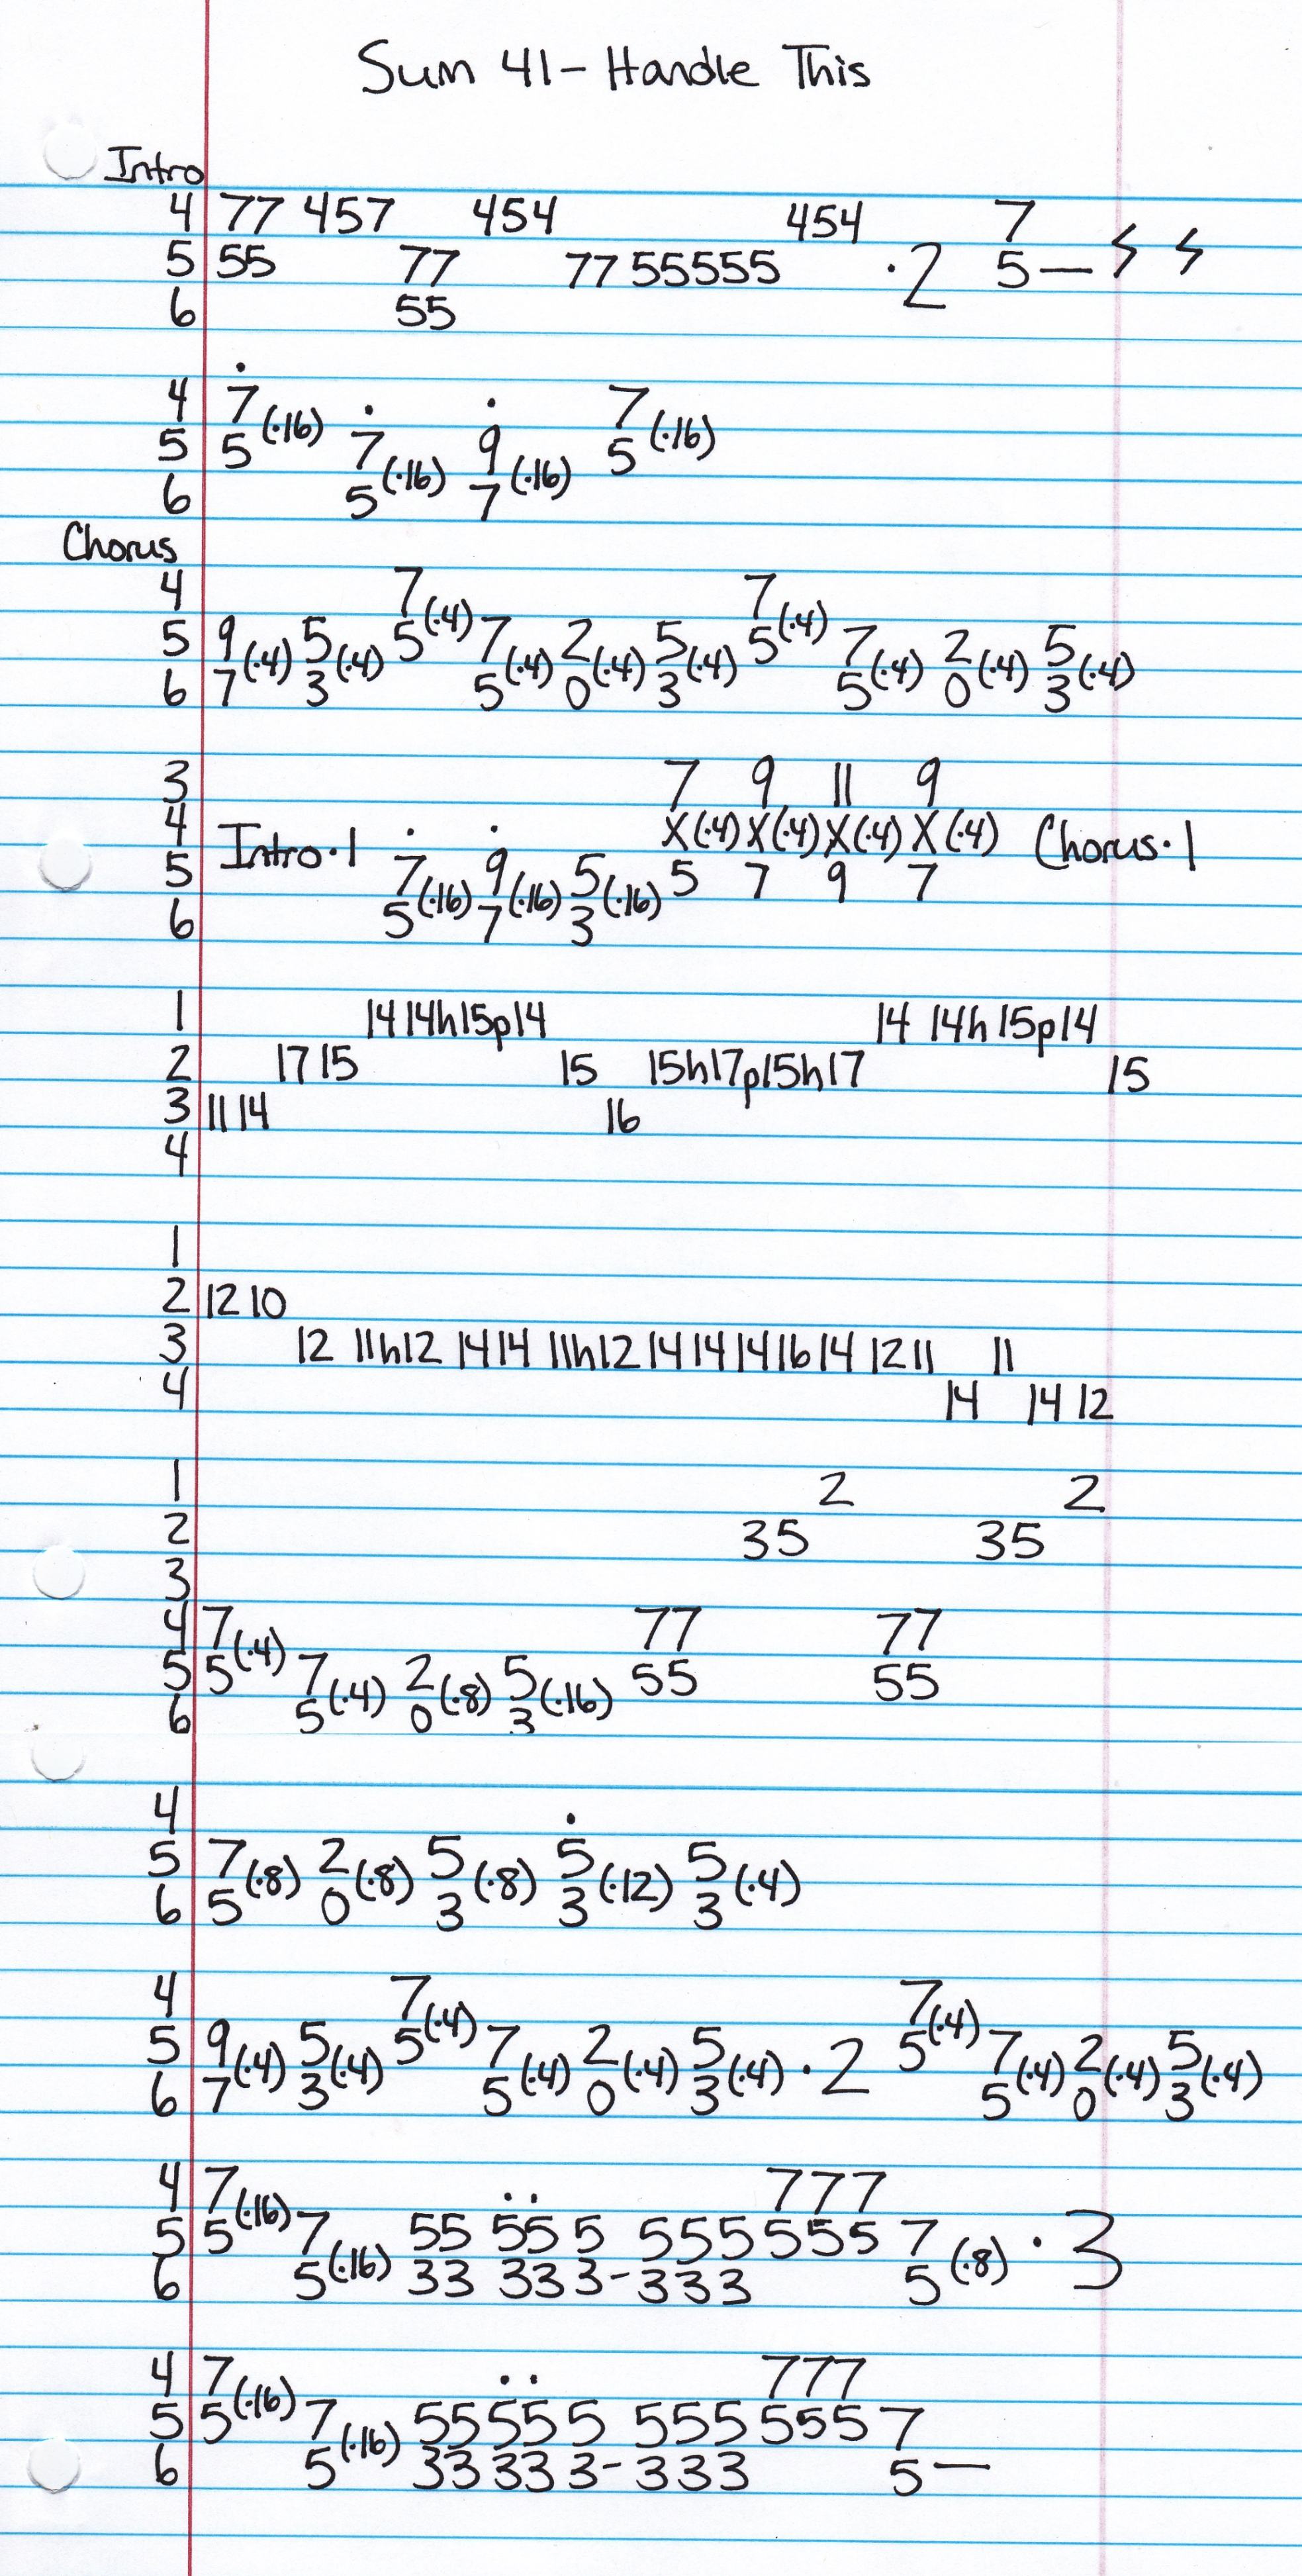 Sum 41 - Handle This
Intro
4 77 457 454 454 7
5 55 77 77 55555 ·2 5— 𝄽 𝄽
6 55
4 7 (·16) 7 (·16)
5 5 7 (·16) 9 (·16) 5
6 5 7
Chorus
4 7 (·4) 7 (·4)
5 9 (·4) 5 (·4) 5 7 (·4) 2 (·4) 5 (·4) 5 7 (·4) 2 (·4) 5 (·4)
6 7 3 5 0 3 5 0 3
3 7 9 11 9
4 Intro·1 X(·4) X(·4) X(·4) X(·4) Chorus·1
5 7 (·16) 9 (·16) 5 (·16) 5 7 9 7
6 5 7 3
1 14 14h15p14 14 14h15p14
2 17 15 15 15h17p15h17 15
3 11 14 16
4
1
2 12 10
3 12 11h12 14 14 11h12 14 14 14 16 14 12 11 11
4 14 14 12
1 2 2
2 35 35
3
4 7 (·4) 77 77
5 5 7 (·4) 2 (·8) 5 (·16) 55 55
6 5 0 3
4
5 7 (·8) 2 (·8) 5 (·8) 5 (·12) 5 (·4)
6 5 0 3 3 3
4 7 (·4) 7 (·4)
5 9 (·4) 5 (·4) 5 7 (·4) 2 (·4) 5 (·4) ·2 5 7 (·4) 2 (·4) 5 (·4)
6 7 3 5 0 3 5 0 3
4 7 (·16) 777
5 5 7 (·16) 55 55 5 555 555 7 (·8) ·3
6 5 33 33 3-333 5
4 7 (·16) 777
5 5 7 (·16) 55 55 5 555 555 7
6 5 33 33 3-333 5—